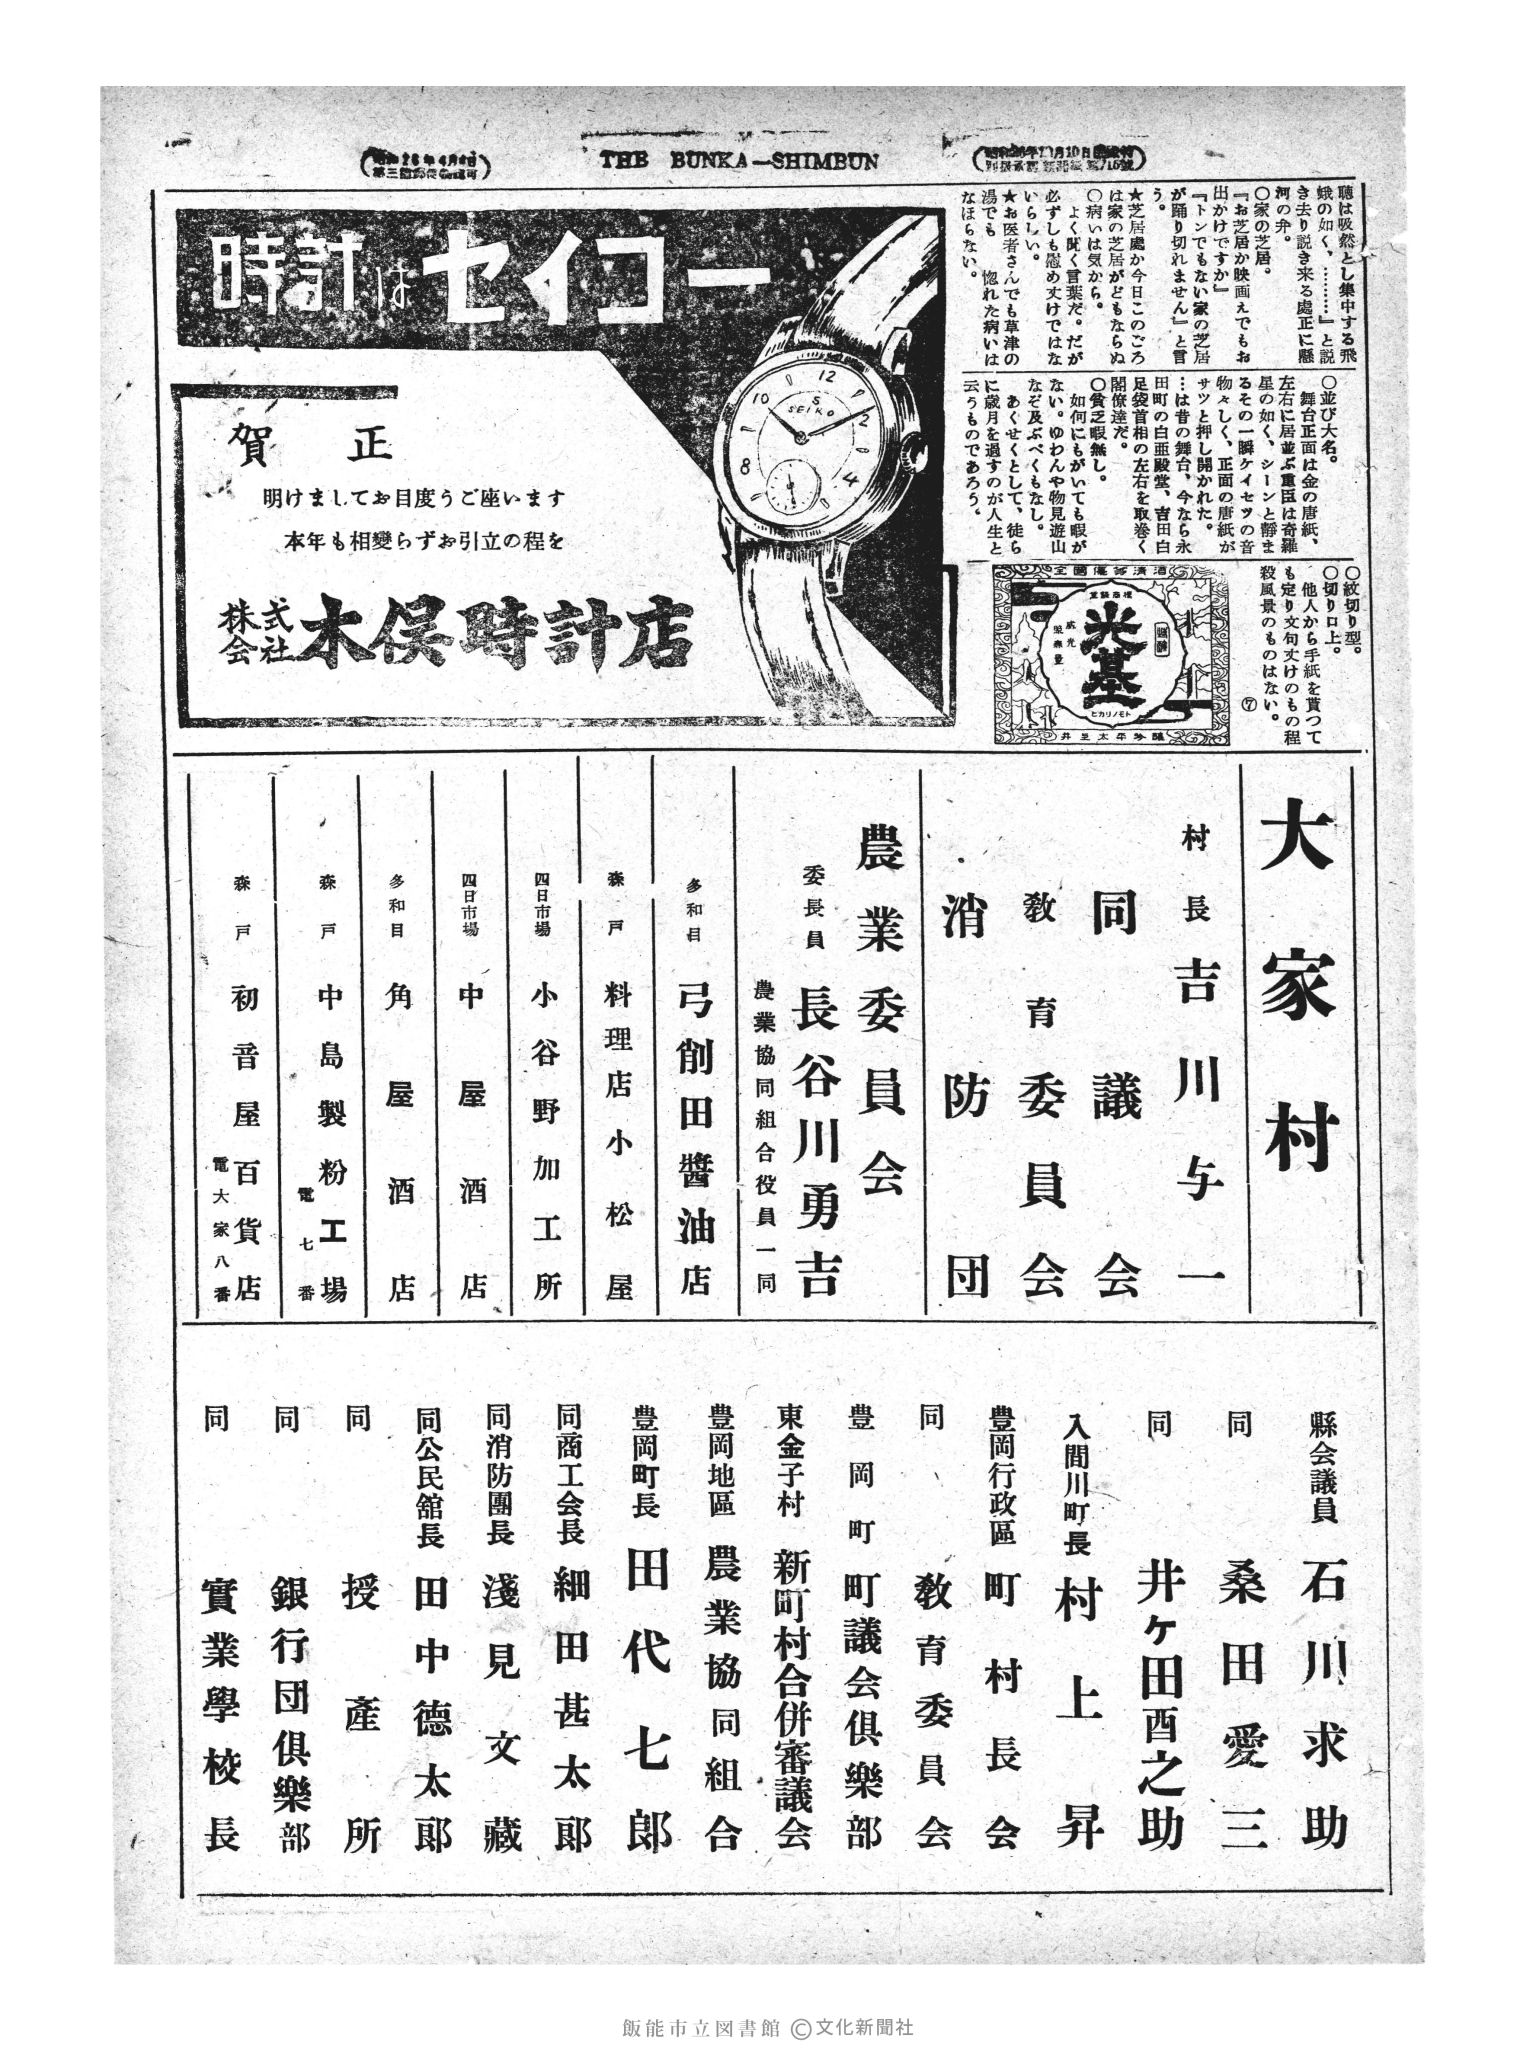 THE BUNKA—SHIMBUN
聴は吸然とし集中する飛
蛾の如く、………』と説
き去り説き来る處正に懸
河の弁。
〇家の芝居。
『お芝居か映画えでもお
出かけですか』
『トンでもない家の芝居
が踊り切れません』と言
う。
★芝居處か今日このごろ
は家の芝居がどもならぬ
〇病いは気から。
よく聞く言葉だ。だが
必ずしも慰め丈けではな
いらしい。
★お医者さんでも草津の
湯でも 惚れた病いは
なほらない。
〇並び大名。
舞台正面は金の唐紙、
左右に居並ぶ重臣は奇羅
星の如く、シーンと靜ま
るその一瞬ケイセツの音
物々しく、正面の唐紙が
サツと押し開かれた。
…は昔の舞台、今なら永
田町の白亜殿堂、吉田白
足袋首相の左右を取巻く
閣僚達だ。
〇貧乏暇無し。
如何にもがいても暇が
ない。ゆわんや物見遊山
なぞ及ぶべくもなし。
あくせくとして、徒ら
に歳月を過すのが人生と
云うものであろう。
〇紋切り型。
〇切り口上。
他人から手紙を貰つて
も定り文句丈けのもの程
殺風景のものはない。
⑦
全国優等清酒
光基
トモノリカヒ
時計は セイコー
SEIKO
賀正
明けましてお目度うご座います
本年も相變らずお引立の程を
株式会社 木俣時計店
大家村
村長 吉川与一
同議会
教育委員会
消防団
農業委員会
委員長 長谷川勇吉
農業協同組合役員一同
多和目 弓削田醬油店
森戸 料理店小松屋
四日市場 小谷野加工所
四日市場 中屋酒店
多和目 角屋酒店
森戸 中島製粉工場
電七番
森戸 初音屋百貨店
電大家八番
縣会議員 石川求助
同 桑田愛三
同 井ケ田酉之助
入間川町長 村上昇
豊岡行政區 町村長会
同 教育委員会
豊岡町 町議会倶樂部
東金子村 新町村合併審議会
豊岡地區 農業協同組合
豊岡町長 田代七郎
同商工会長 細田甚太郎
同消防團長 淺見文藏
同公民舘長 田中德太郎
同 授產所
同 銀行団倶樂部
同 實業學校長
飯能市立図書館 ©文化新聞社